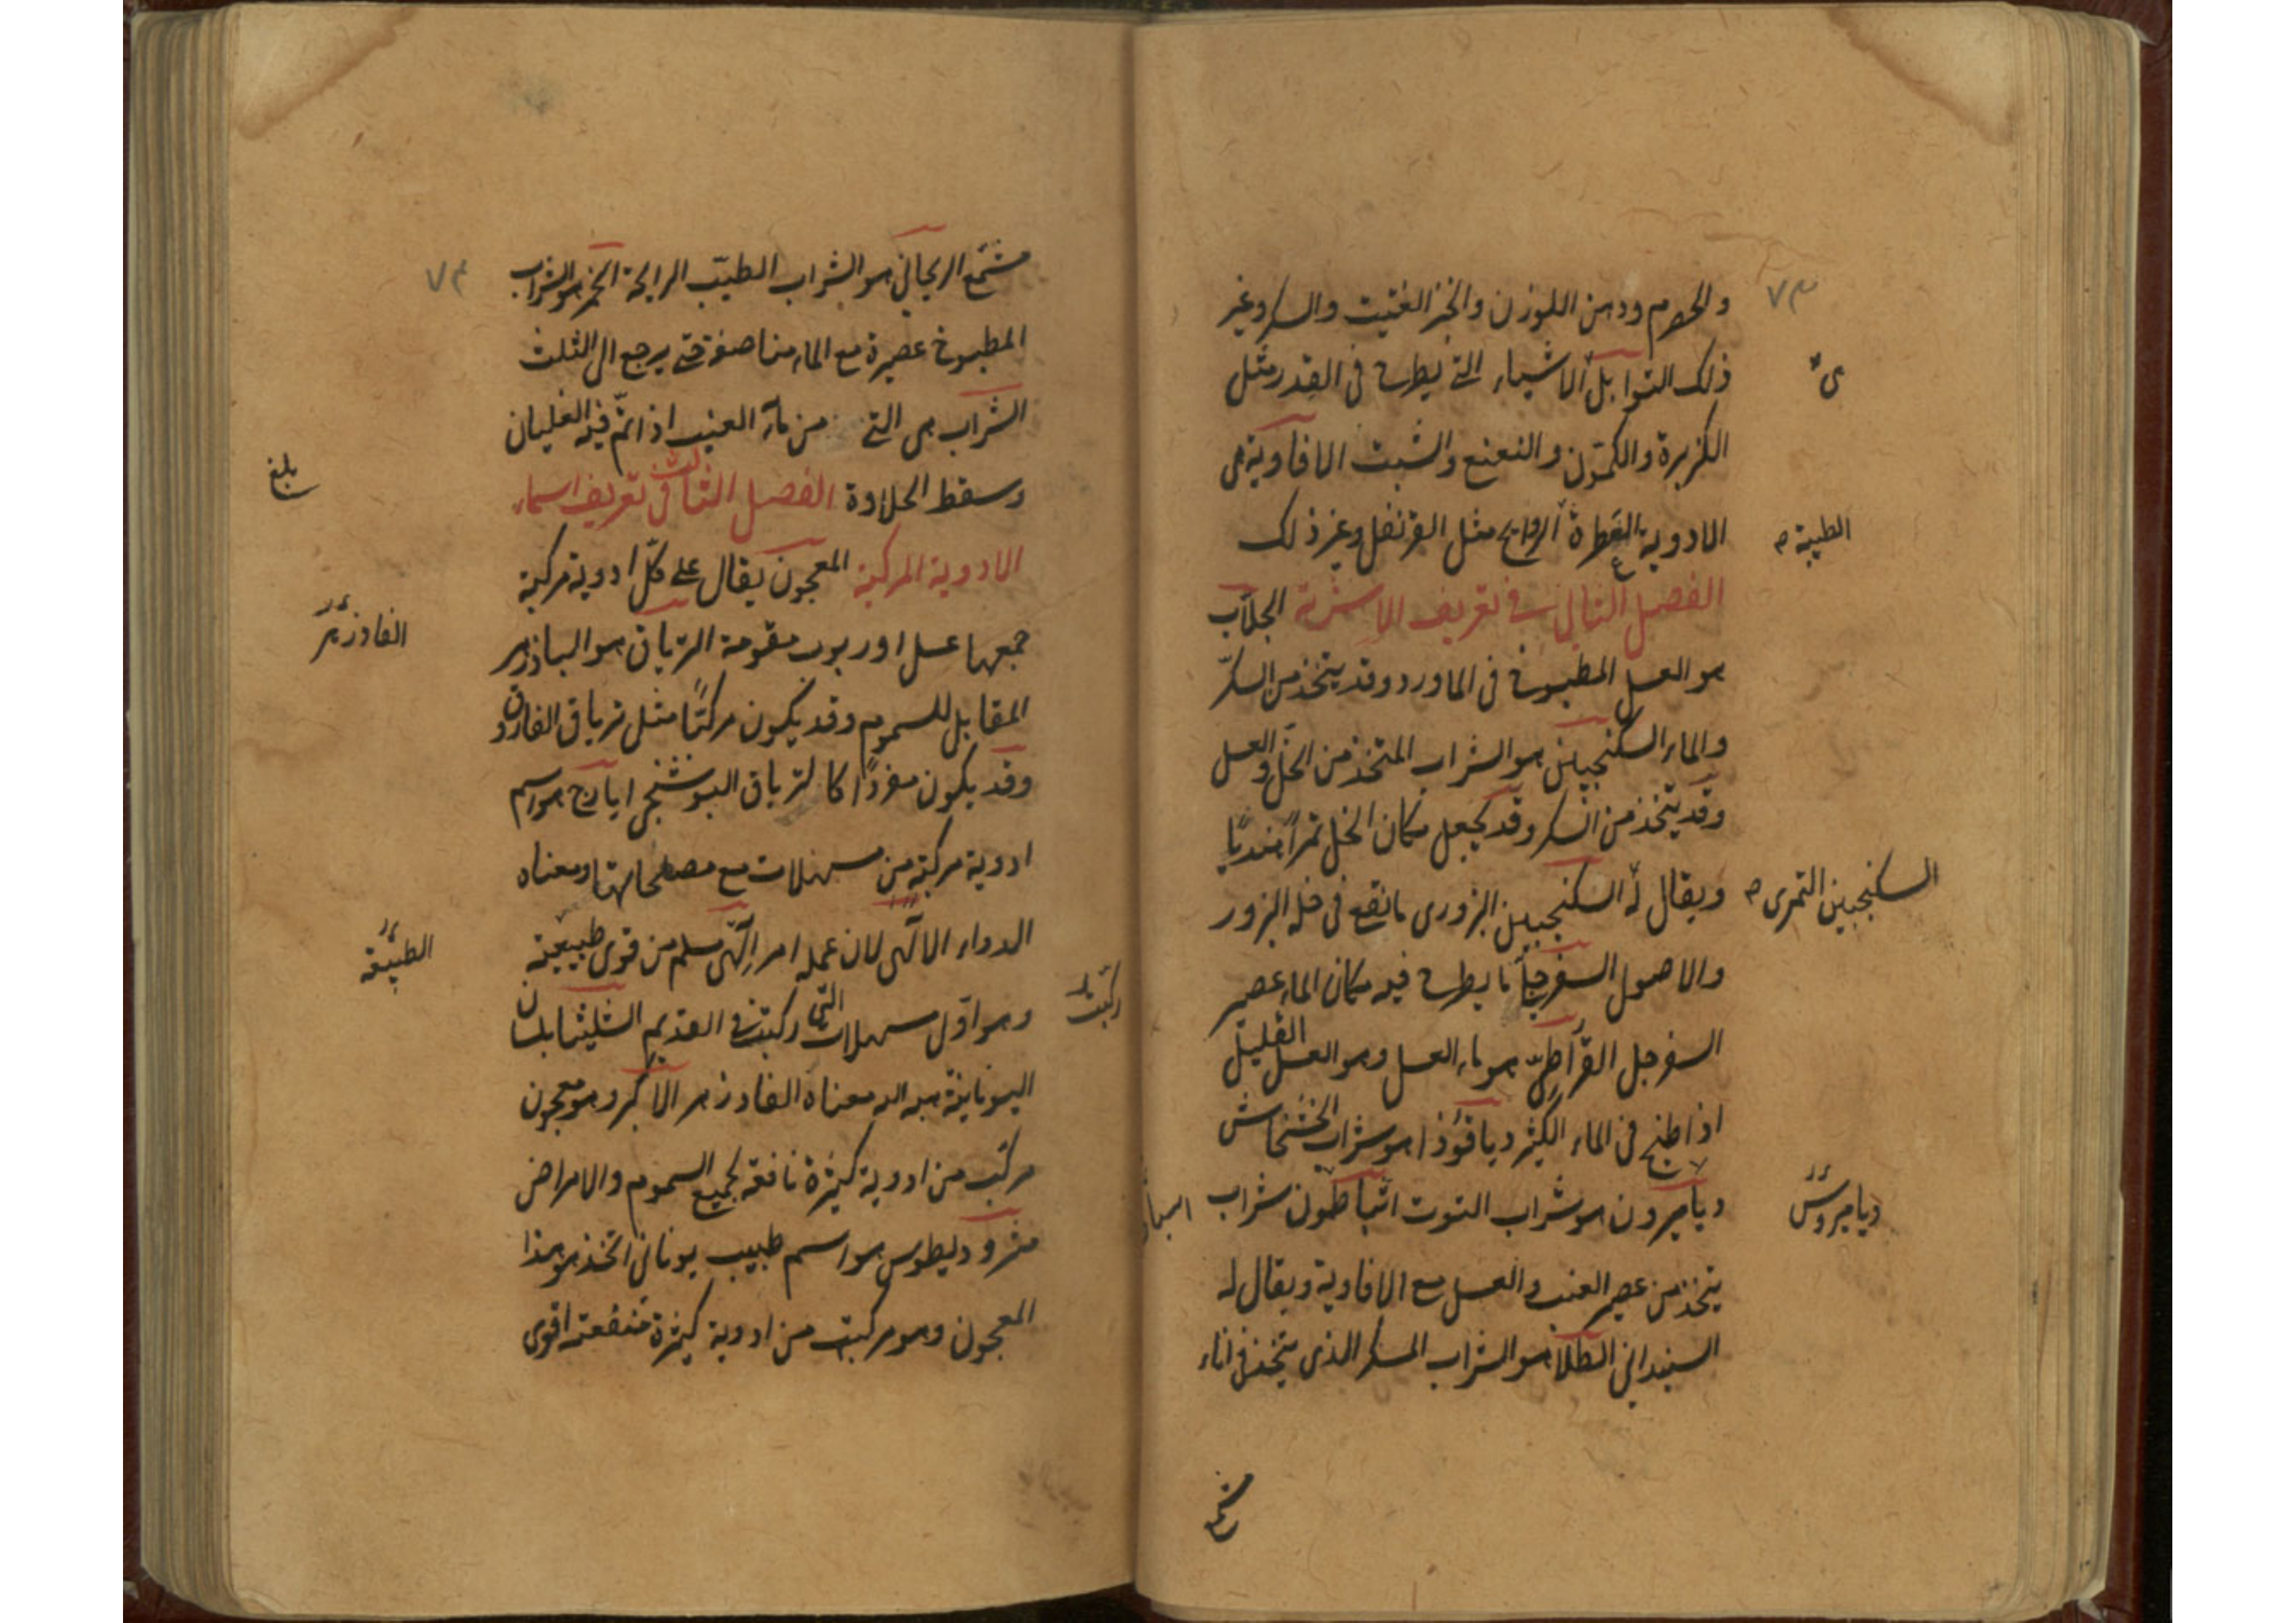 والحصرم ودهن اللوز ن والخبز الفتيت والسكر وغير
ذلك التوابل الاشياء التى يطرح فى القدر مثل
الكزبرة والكمون والنعنع والشبت الافاوية هى
الادوية العطرة الروايح مثل القرنفل وغير ذلك
الفصل الثانى فى تعريف الاشربة الجلاب
هو العسل المطبوخ فى الماورد وقد يتخذ من السكر
والماء السكنجبين هو الشراب المتخذ من الخل والعسل
وقد يتخذ من السكر وقد يجعل مكان الخل تمرا هنديا
ويقال له السكنجبين البزورى ما نقع فى خله البزور
والاصول السفرجلى ما يطرح فيه مكان الماء عصير
السفرجل القراطن هو ماء العسل وهو العسل القليل
اذا طبخ فى الماء الكثير دياقوذا هو شراب الخشخاش
دياميرون هو شراب التوت شراب
يتخذ من عصير العنب والعسل مع الافاوية ويقال له
الطلا هو الشراب المسكر الذى يتخذ فى اناء
٧٣
ى
الطيبة
السكنجبين التمرى
دياميروس
مشمع
مشمع الريحانى هو الشراب الطيب الرايحة الخمر هو الشراب
المطبوخ عصيرة مع الماء مناصفة حتى يرجع الى الثلث
الشراب هى التى من ماء العنب اذا تم فيه الغليان
وسقط الحلاوة الفصل الثالث فى تعريف اسماء
الادوية المركبة المعجون يقال على كل ادوية مركبة
جمعها عسل او ربوب مقومة الترياق هو الباذزهر
المقابل للسموم وقد يكون مركبا مثل ترياق الفاروق
وقد يكون مفردا كالترياق البوشنجى ايارج هو اسم
ادوية مركبة من مسهلات مع مصلحاتها ومعناه
الدواء الالهى لان عمله امر الهى مسلم من قوى طبيعية
وهو اول مسهلات التى ركبت فى القديم الشليثا بلسان
اليونانية معناه الفادزهر الاكبر وهو معجون
مركب من ادوية كثيرة نافعة لجميع السموم والامراض
مثروديطوس هو اسم طبيب يونانى اتخذ هو هذا
المعجون وهو مركب من ادوية كثيرة منفعته اقوى
بلغ
الفادزهر
ركبت